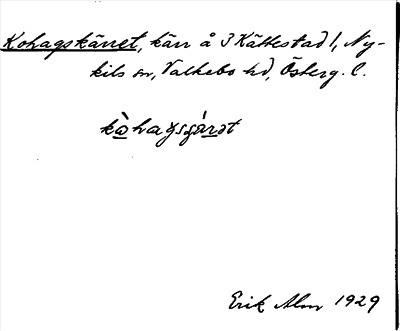 Kohagskärret, kärr å 3 Kättestad 1, Ny-
kils sn, Valkebo hd, Österg. l.
kòhagsgárət
Erik Alm 1929